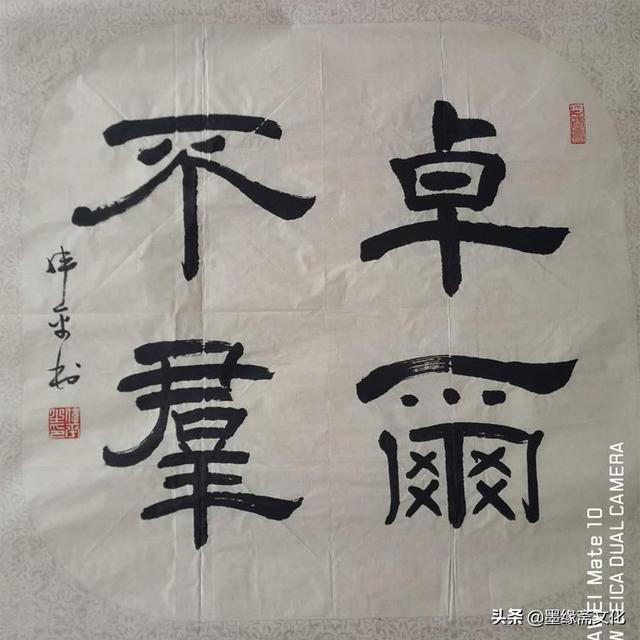 卓爾
不羣
HUAWEI Mate 10
LEICA DUAL CAMERA
头条 @墨缘斋文化